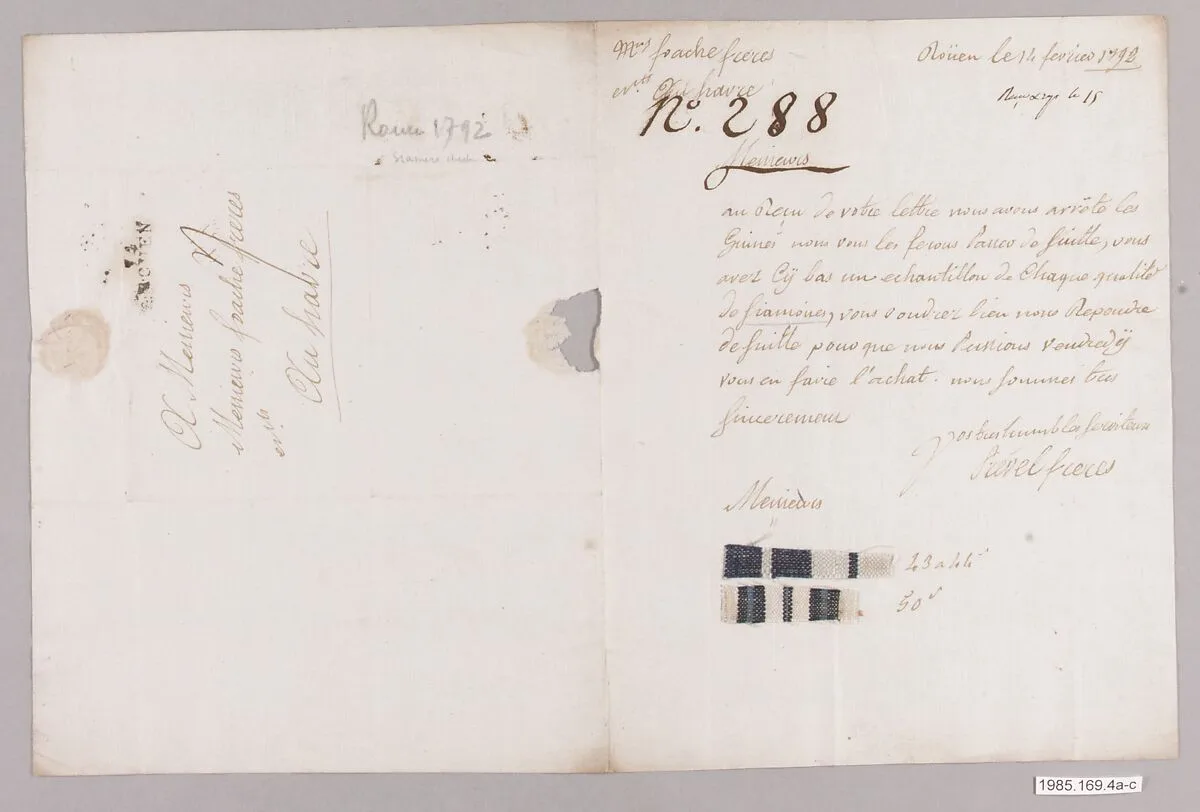 Rouen 1792
74
ROUEN
A Messieurs
Messieurs foache freres
Au havre
Mrs foache freres
Au havre
Roüen le 14 fevrier 1792
le 15
No. 288
Messieurs
au Reçu de votre lettre nous avons arrêté les
Guinés nous vous les ferons de suitte, vous
avez Cÿ bas un echantillon de Chaque qualité
de siamoises, vous voudrez bien nous Repondre
de suitte pour que nous Puissions vendredÿ
vous en faire l'achat. nous sommes tres
sincerement
Vos tres humbles serviteurs
Prével freres
Messieurs
43 a 44 s
50 s
1985.169.4a-c